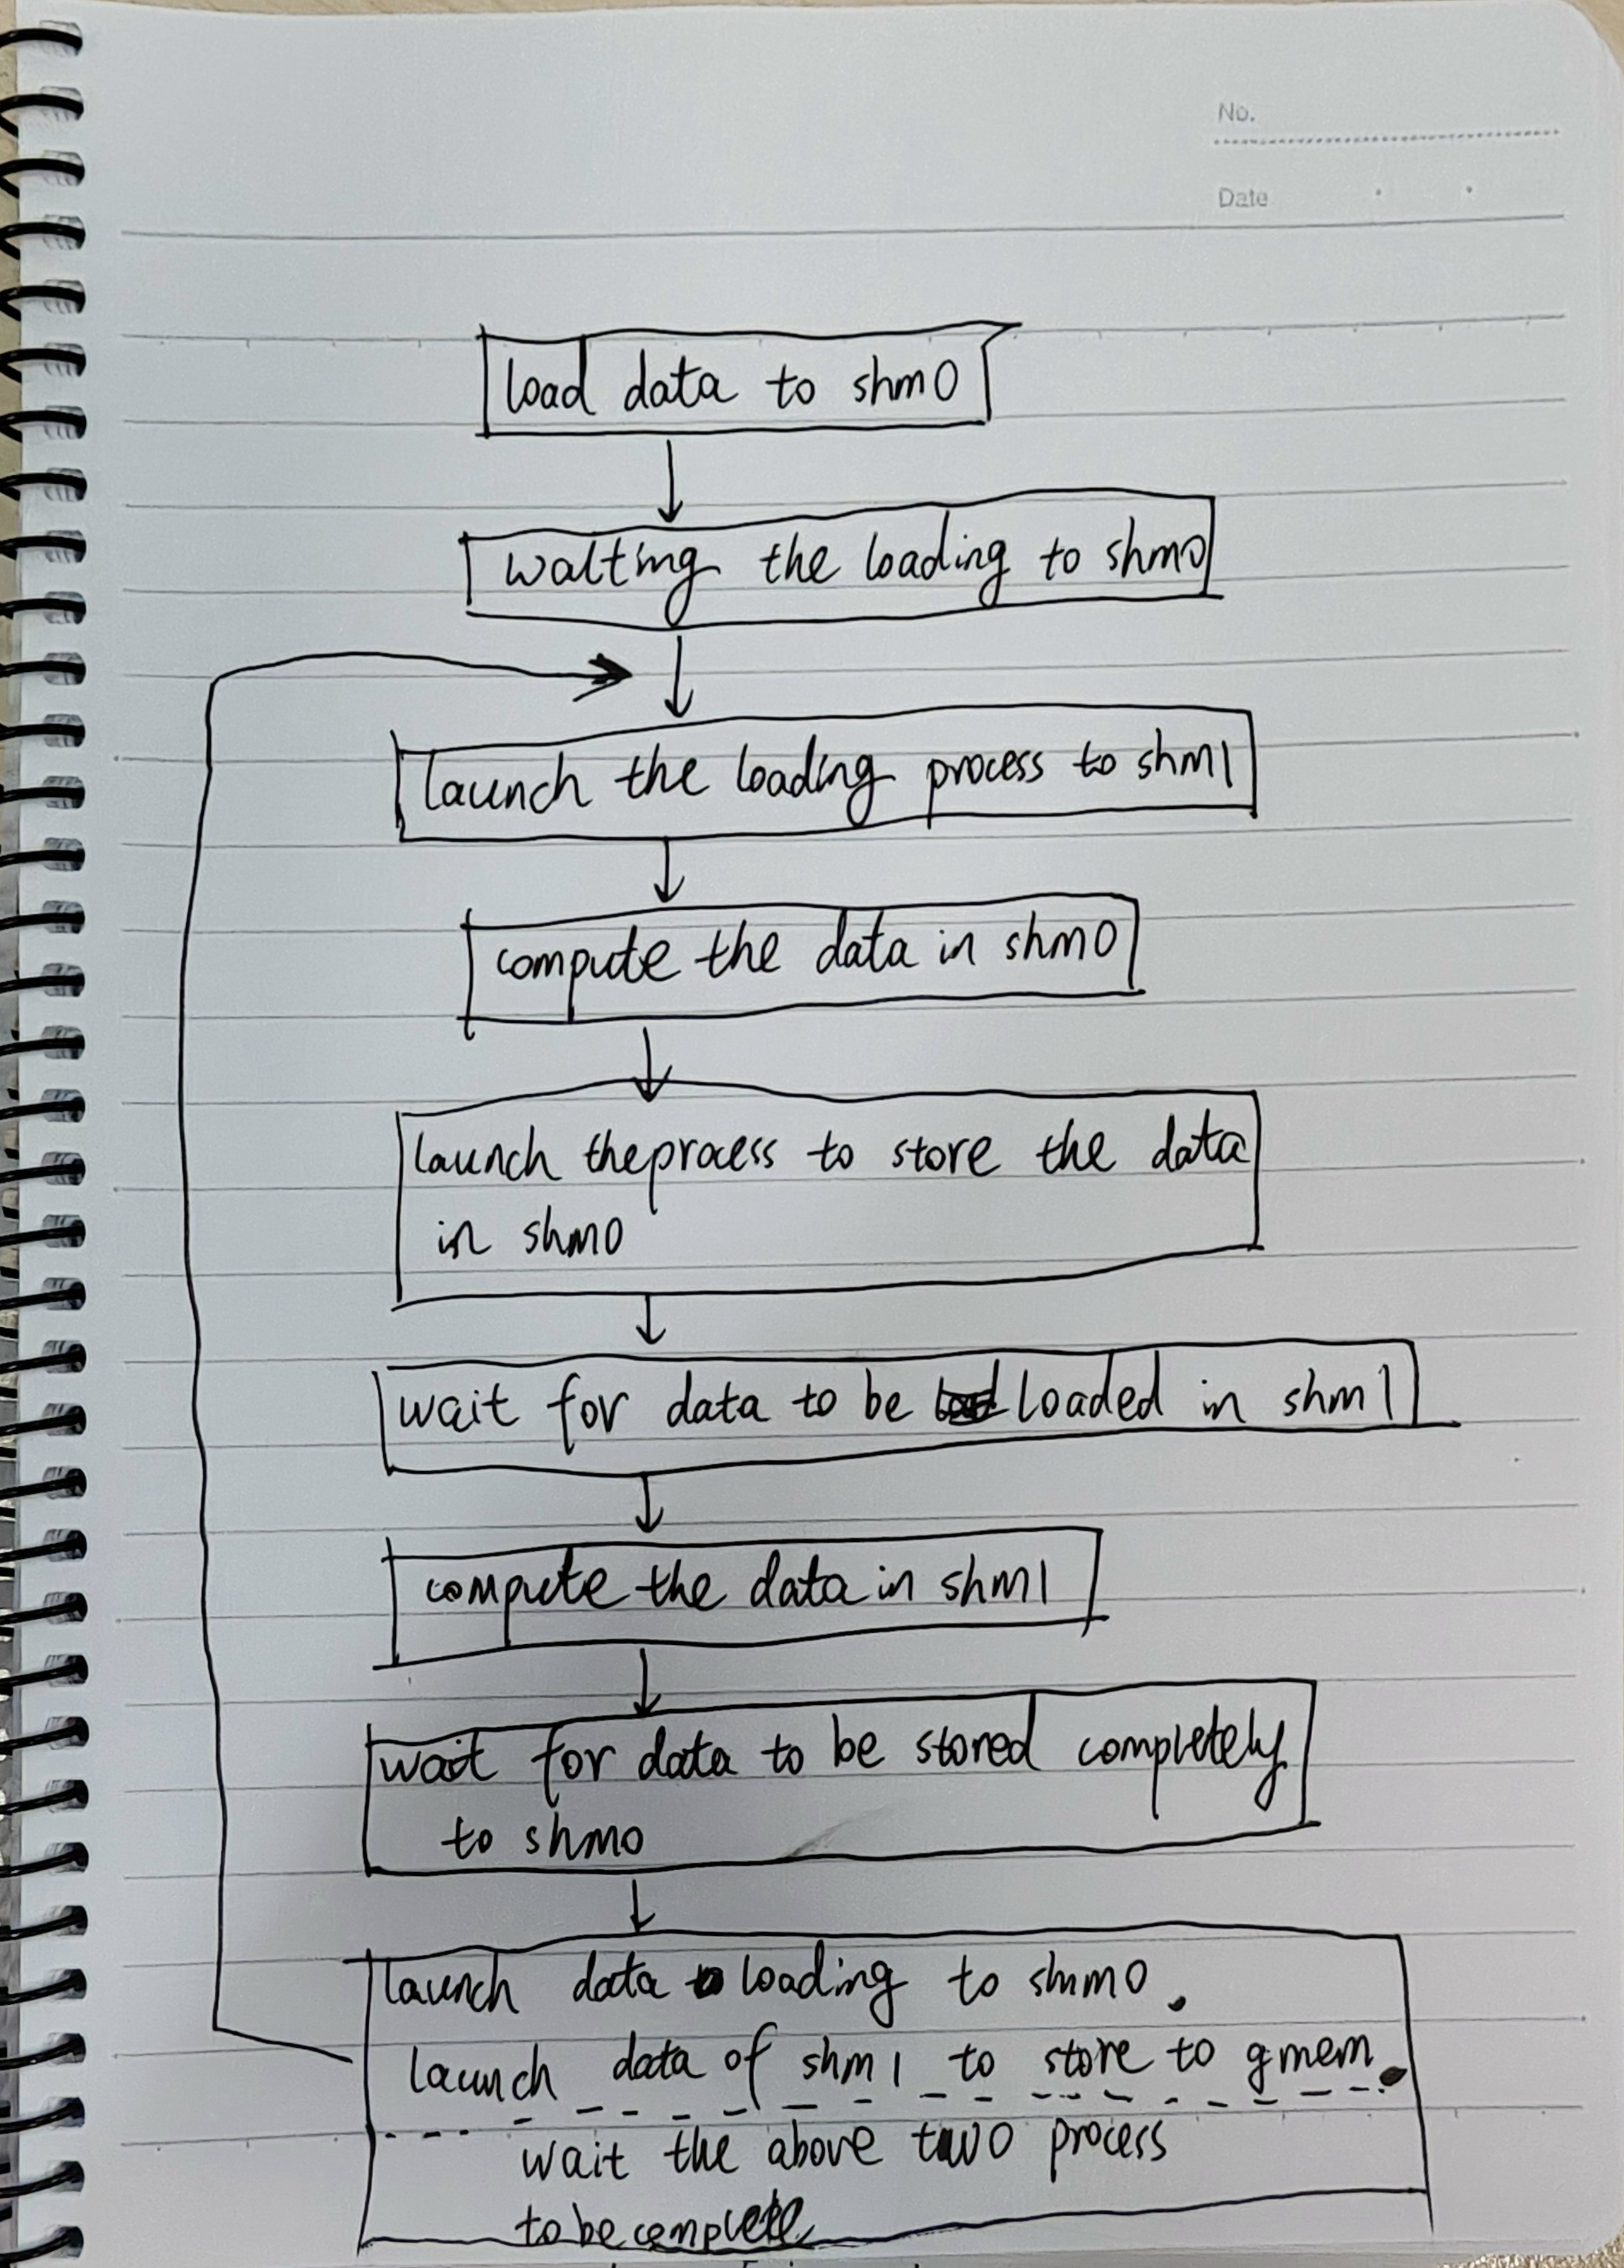 No.
Date
load data to shm0
waiting the loading to shm0
launch the loading process to shm1
compute the data in shm0
launch the process to store the data
in shm0
wait for data to be loaded in shm1
compute the data in shm1
wait for data to be stored completely
to shm0
launch data loading to shm0.
launch data of shm1 to store to gmem.
wait the above two process
to be complete